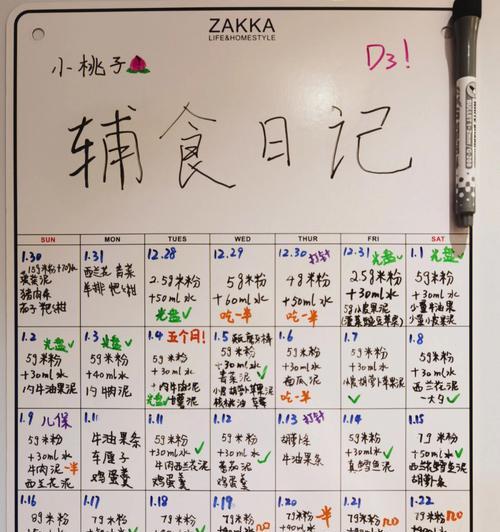 ZAKKA
LIFE&HOMESTYLE
小桃子
D3!
辅食日记
SUN
MON
TUES
WED
THUR
FRI
SAT
1.30
猪肉条
茄子 粑粑柑
1.31
西兰花 青菜
羊排 粑粑柑
12.28
2.5g米粉
+50ml水
光盘
12.29
5g米粉
+60ml水
吃一半
12.30 打针
4g米粉
+50ml水
吃一半
12.31 光盘
2.5g米粉
+30ml水
1.1 光盘
5g米粉
+30ml水
小量牛油果
1.2 光盘
5g米粉
+30ml水
1/4牛油果泥
1.3 光盘
5g米粉
+40ml水
1/4牛肉泥
1.4 五个月!
5g米粉
+30ml水
1/4牛油果泥
光盘
1.5
5g米粉
+30ml水
青菜泥
1.6
5g米粉
+30ml水
西瓜泥
吃一半
1.7
5g米粉
+30ml水
1.8
5g米粉
+30ml水
西兰花泥
1.9 儿保
5g米粉
+30ml水
牛肉泥一半
西兰花泥
1.11
牛油果条
车厘子
鸡蛋羹
1.11
5g米粉
+30ml水
牛肉西兰花泥
鸡蛋羹
1.12
5g米粉
+30ml水
番茄泥
鸡蛋羹
1.13 打针
胡萝卜条
牛油果条
1.14
5g米粉
+30ml水
真鳕鱼泥
1.15
7g米粉
+30ml水
胡萝卜条
1.16
8g米粉
1.17
7g米粉
1.18
7g米粉
1.19
7g米粉
1.20
7g米粉
一半
1.21
7g米粉
1.22
7g米粉